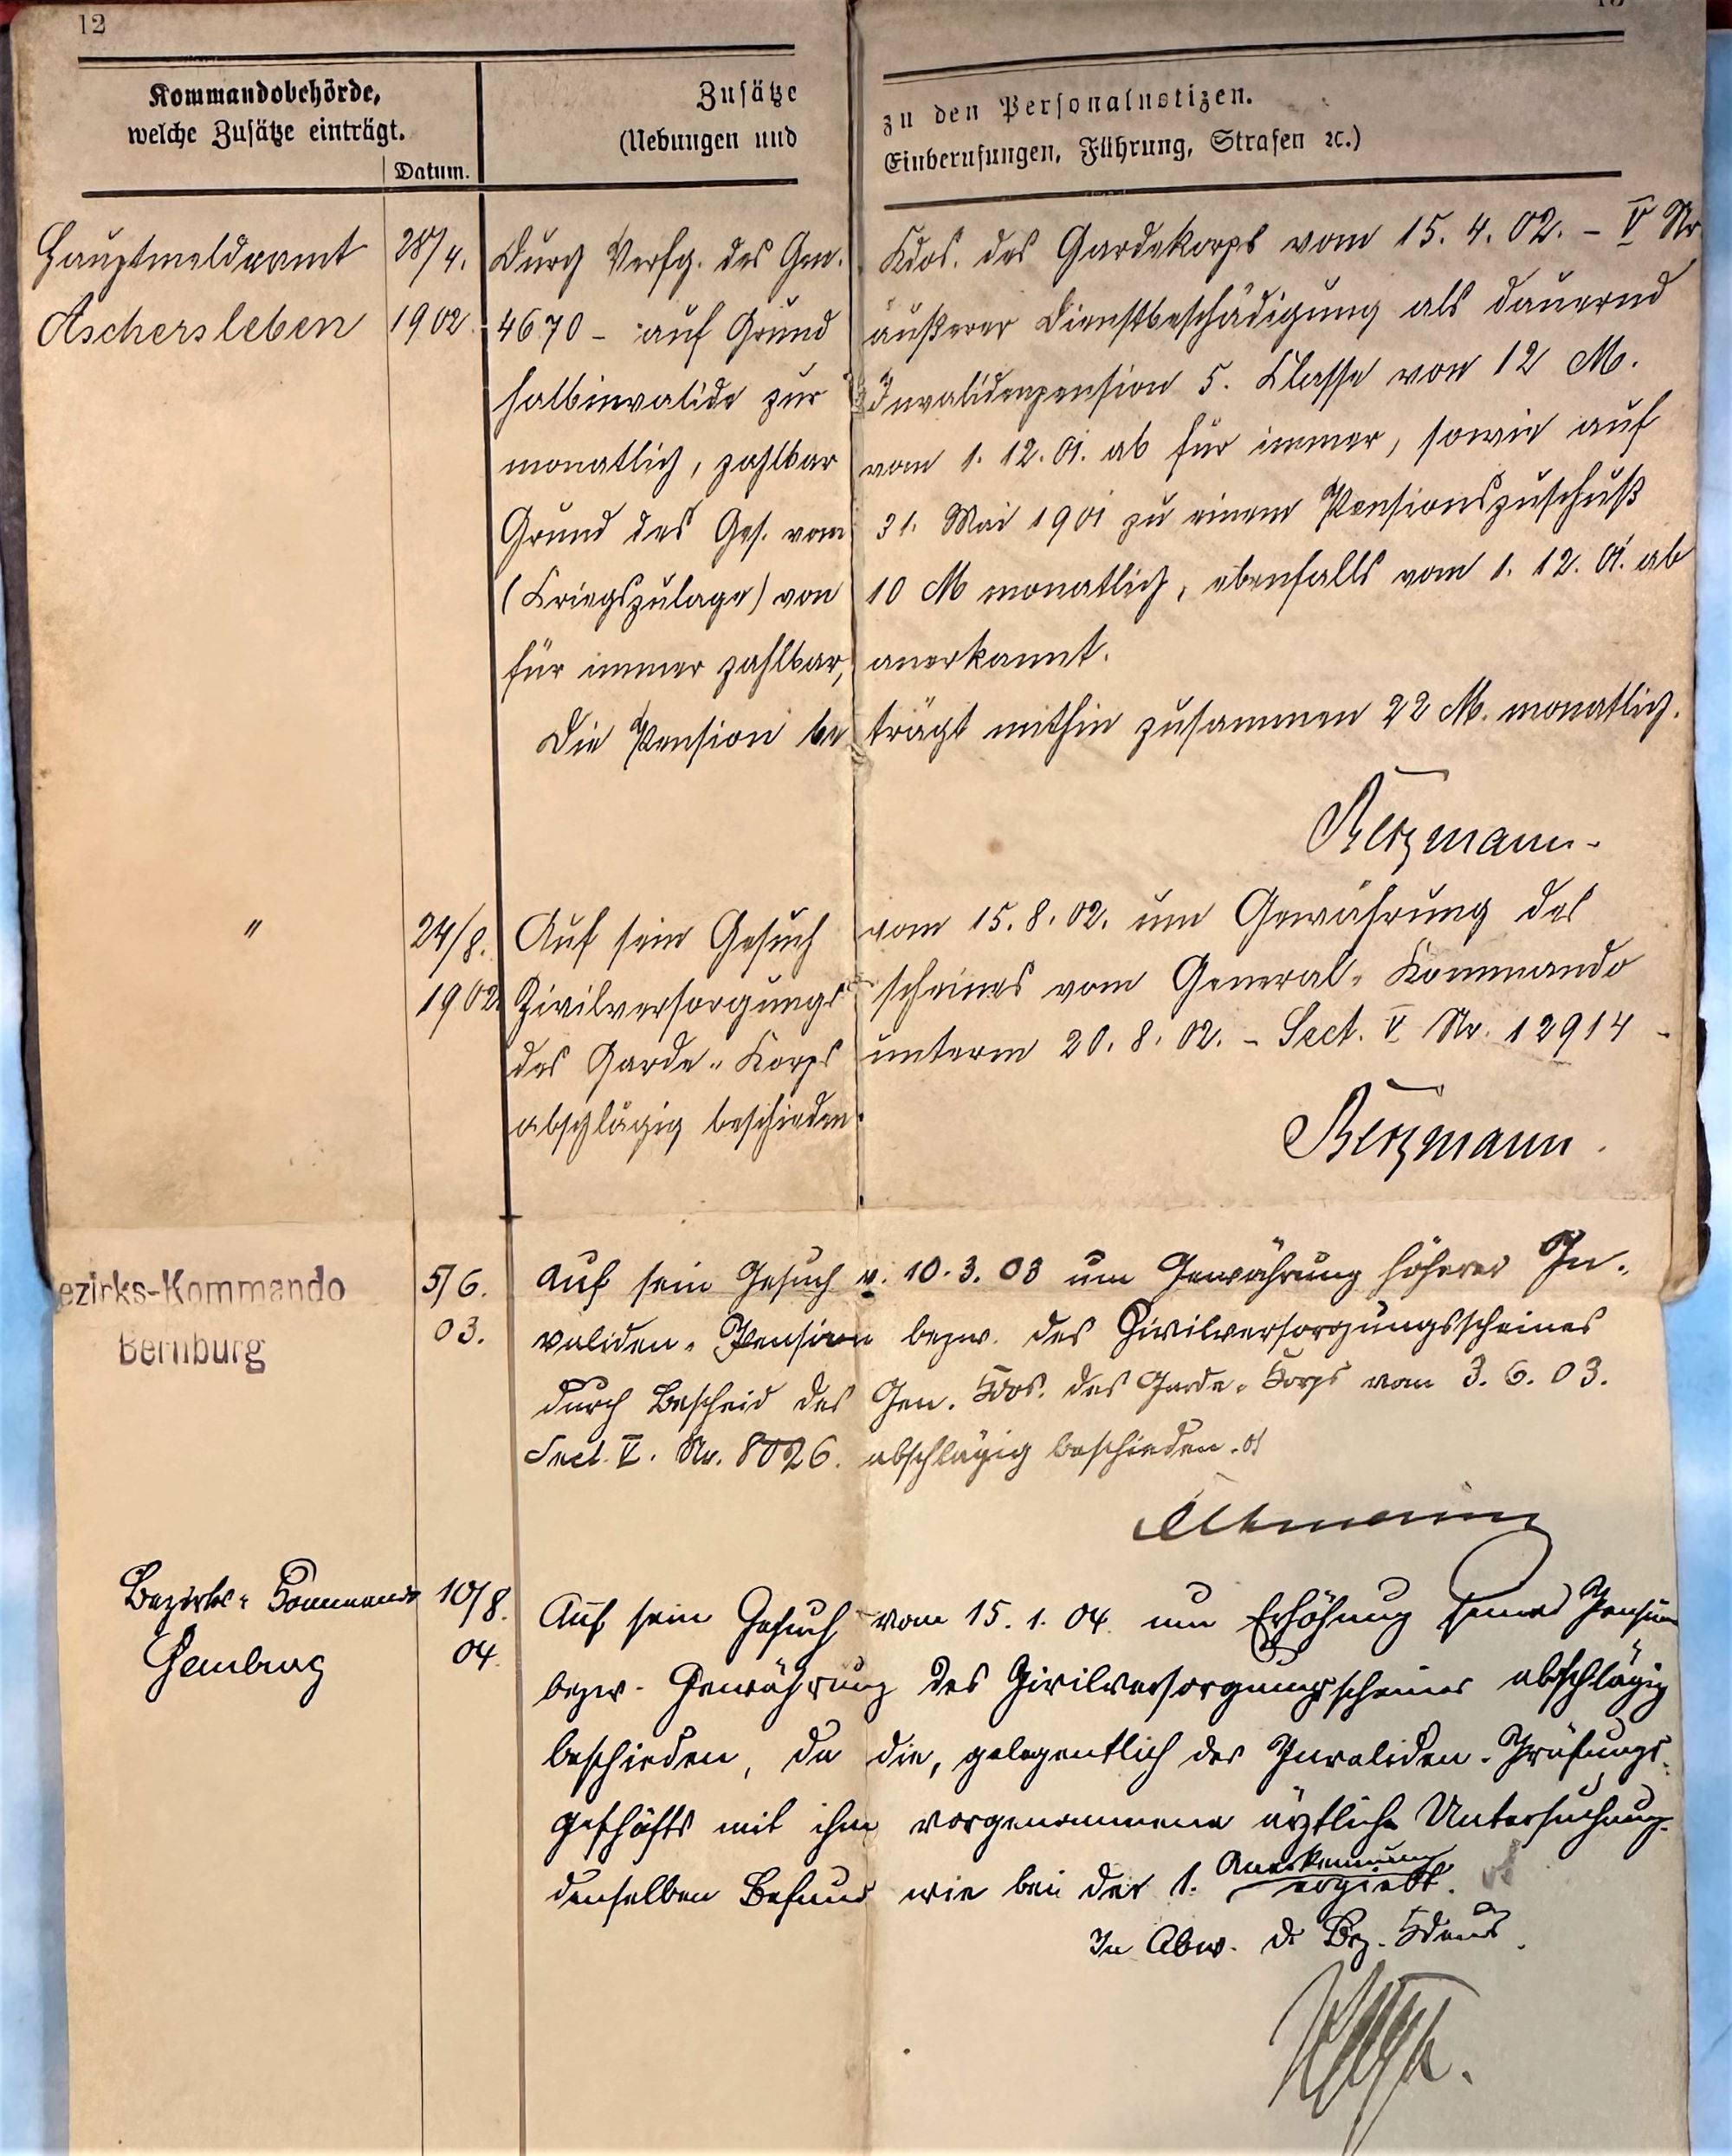 12
Kommandobehörde,
welche Zusätze einträgt.
Datum.
Zusätze zu den Personalnotizen.
(Uebungen und Einberufungen, Führung, Strafen ꝛc.)
Hauptmeldeamt 28/4. Durch Verfg. des Gen. Kdos. des Gardekorps vom 15. 4. 02. – V Nr
Aschersleben 1902. 4670 – auf Grund äußerer Dienstbeschädigung als dauernd
halbinvalide zur Invalidenpension 5. Klasse von 12 M.
monatlich, zahlbar vom 1. 12. 01. ab für immer, sowie auf
Grund des Ges. vom 31. Mai 1901 zu einem Pensionszuschuß
(Kriegszulage) von 10 M monatlich, ebenfalls vom 1. 12. 01. ab
für immer zahlbar, anerkannt.
Die Pension beträgt mithin zusammen 22 M. monatlich.
Bergmann.
" 24/8. Auf sein Gesuch vom 15. 8. 02. um Gewährung des
1902 Zivilversorgungsscheines vom General-Kommando
des Garde-Korps unterm 20. 8. 02. – Sect. V Nr. 12914 –
abschlägig beschieden.
Bergmann.
ezirks-Kommando 5/6. Auf sein Gesuch v. 10. 3. 03 um Gewährung höherer In-
Bernburg 03. validen-Pension bezw. des Civilversorgungsscheines
durch Bescheid des Gen. Kdos. des Garde-Korps vom 3. 6. 03.
Sect. V. Nr. 8026. abschlägig beschieden.
Bezirks-Kommando 10/8. Auf sein Gesuch vom 15. 1. 04. um Erhöhung seiner Pension
Bernburg 04. bezw. Gewährung des Civilversorgungsscheines abschlägig
beschieden, da die, gelegentlich des Invaliden-Prüfungs-
geschäfts mit ihm vorgenommene ärztliche Untersuchung
denselben Befund wie bei der 1. Anerkennung ergiebt.
In Abw. d. Bez. Kdeurs.